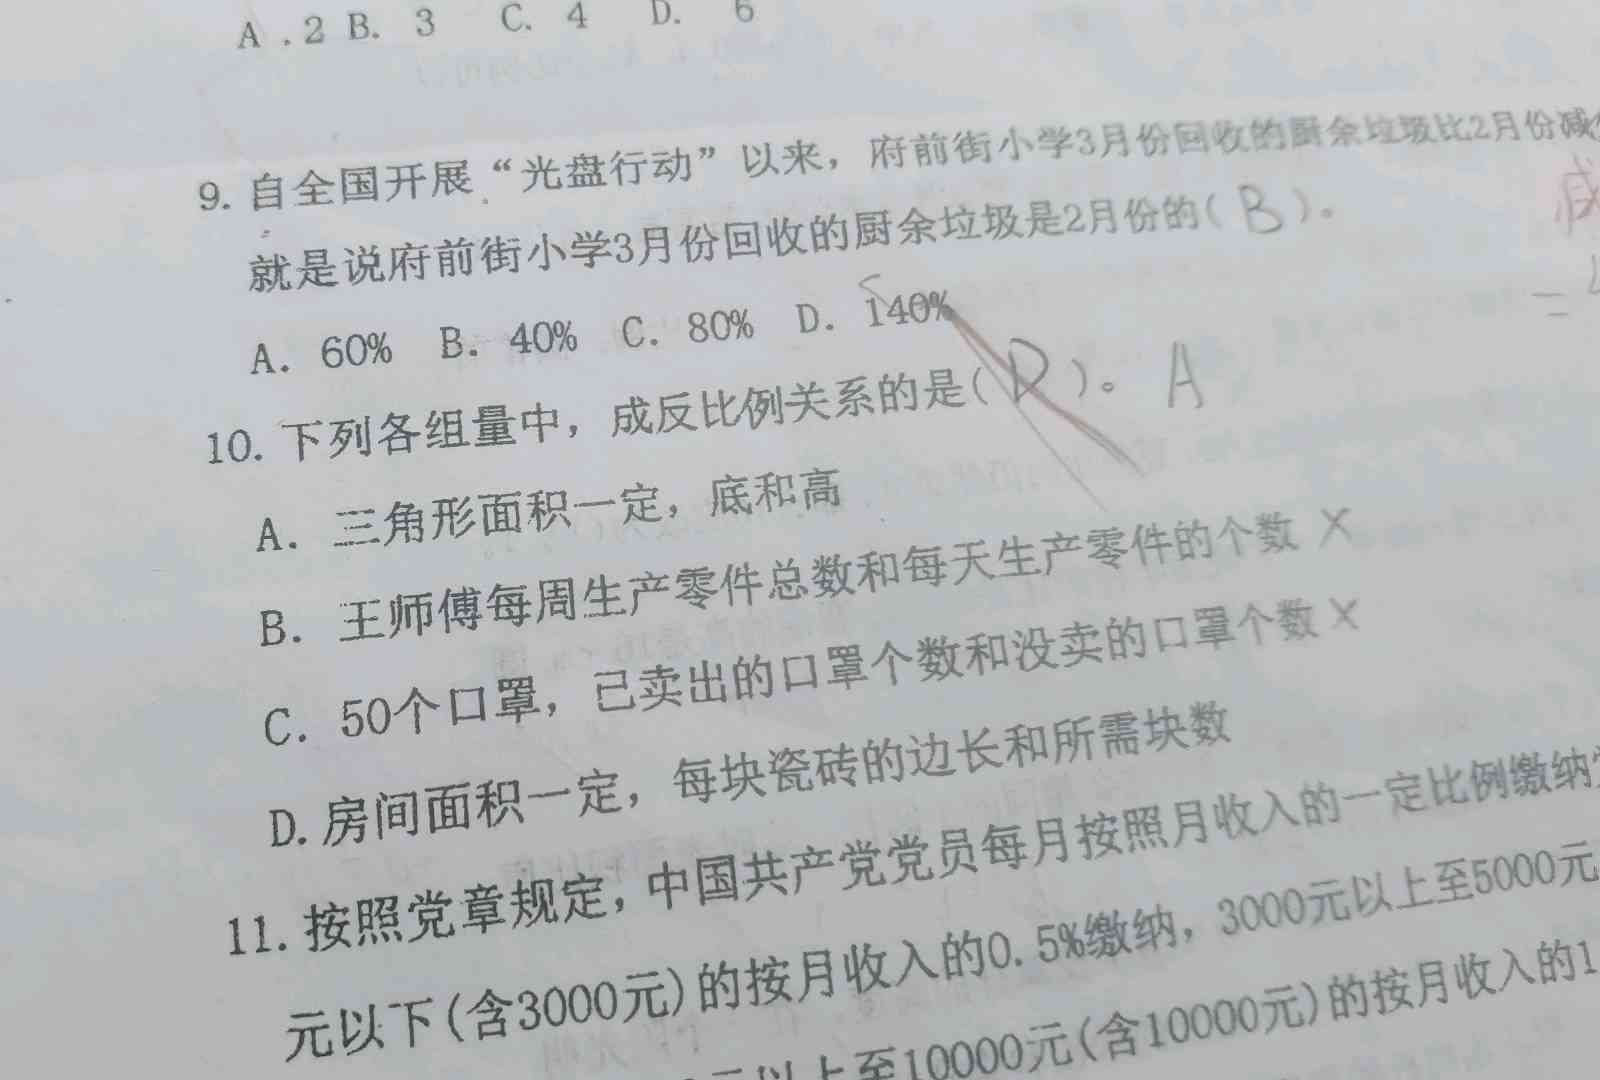 A .2 B. 3 C. 4 D. 6
9. 自全国开展“光盘行动”以来，府前街小学3月份回收的厨余垃圾比2月份减
就是说府前街小学3月份回收的厨余垃圾是2月份的( B )。
A. 60% B. 40% C. 80% D. 140%
10. 下列各组量中，成反比例关系的是( D )。 A
A. 三角形面积一定，底和高
B. 王师傅每周生产零件总数和每天生产零件的个数 ×
C. 50个口罩，已卖出的口罩个数和没卖的口罩个数 ×
D. 房间面积一定，每块瓷砖的边长和所需块数
11. 按照党章规定，中国共产党党员每月按照月收入的一定比例缴纳
元以下(含3000元)的按月收入的0.5%缴纳，3000元以上至5000元
元以上至10000元(含10000元)的按月收入的1